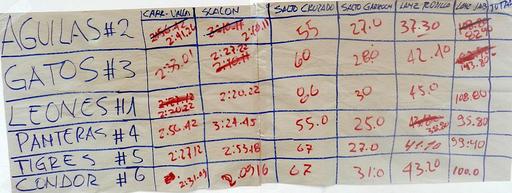 CARR-VALLA SLALON SALTO CRUZADO SALTO GARROCH LANZ RODILLA LANZ JAB TOTAL
AGUILAS #2 2:41.26 2:10.11 55 27.0 37.30
GATOS #3 2:33.01 2:27.22 60 280 42.10
LEONES #1 2:20.22 2:20.22 0,6 30 45.0 108.80
PANTERAS #4 2:56.42 3:24.45 55.0 25.0 95.80
TIGRES #5 2:27.12 2:53.48 67 27.0 41.10 99.40
CONDOR #6 2:31.03 2.0916 67 31.0 43.20 100.0